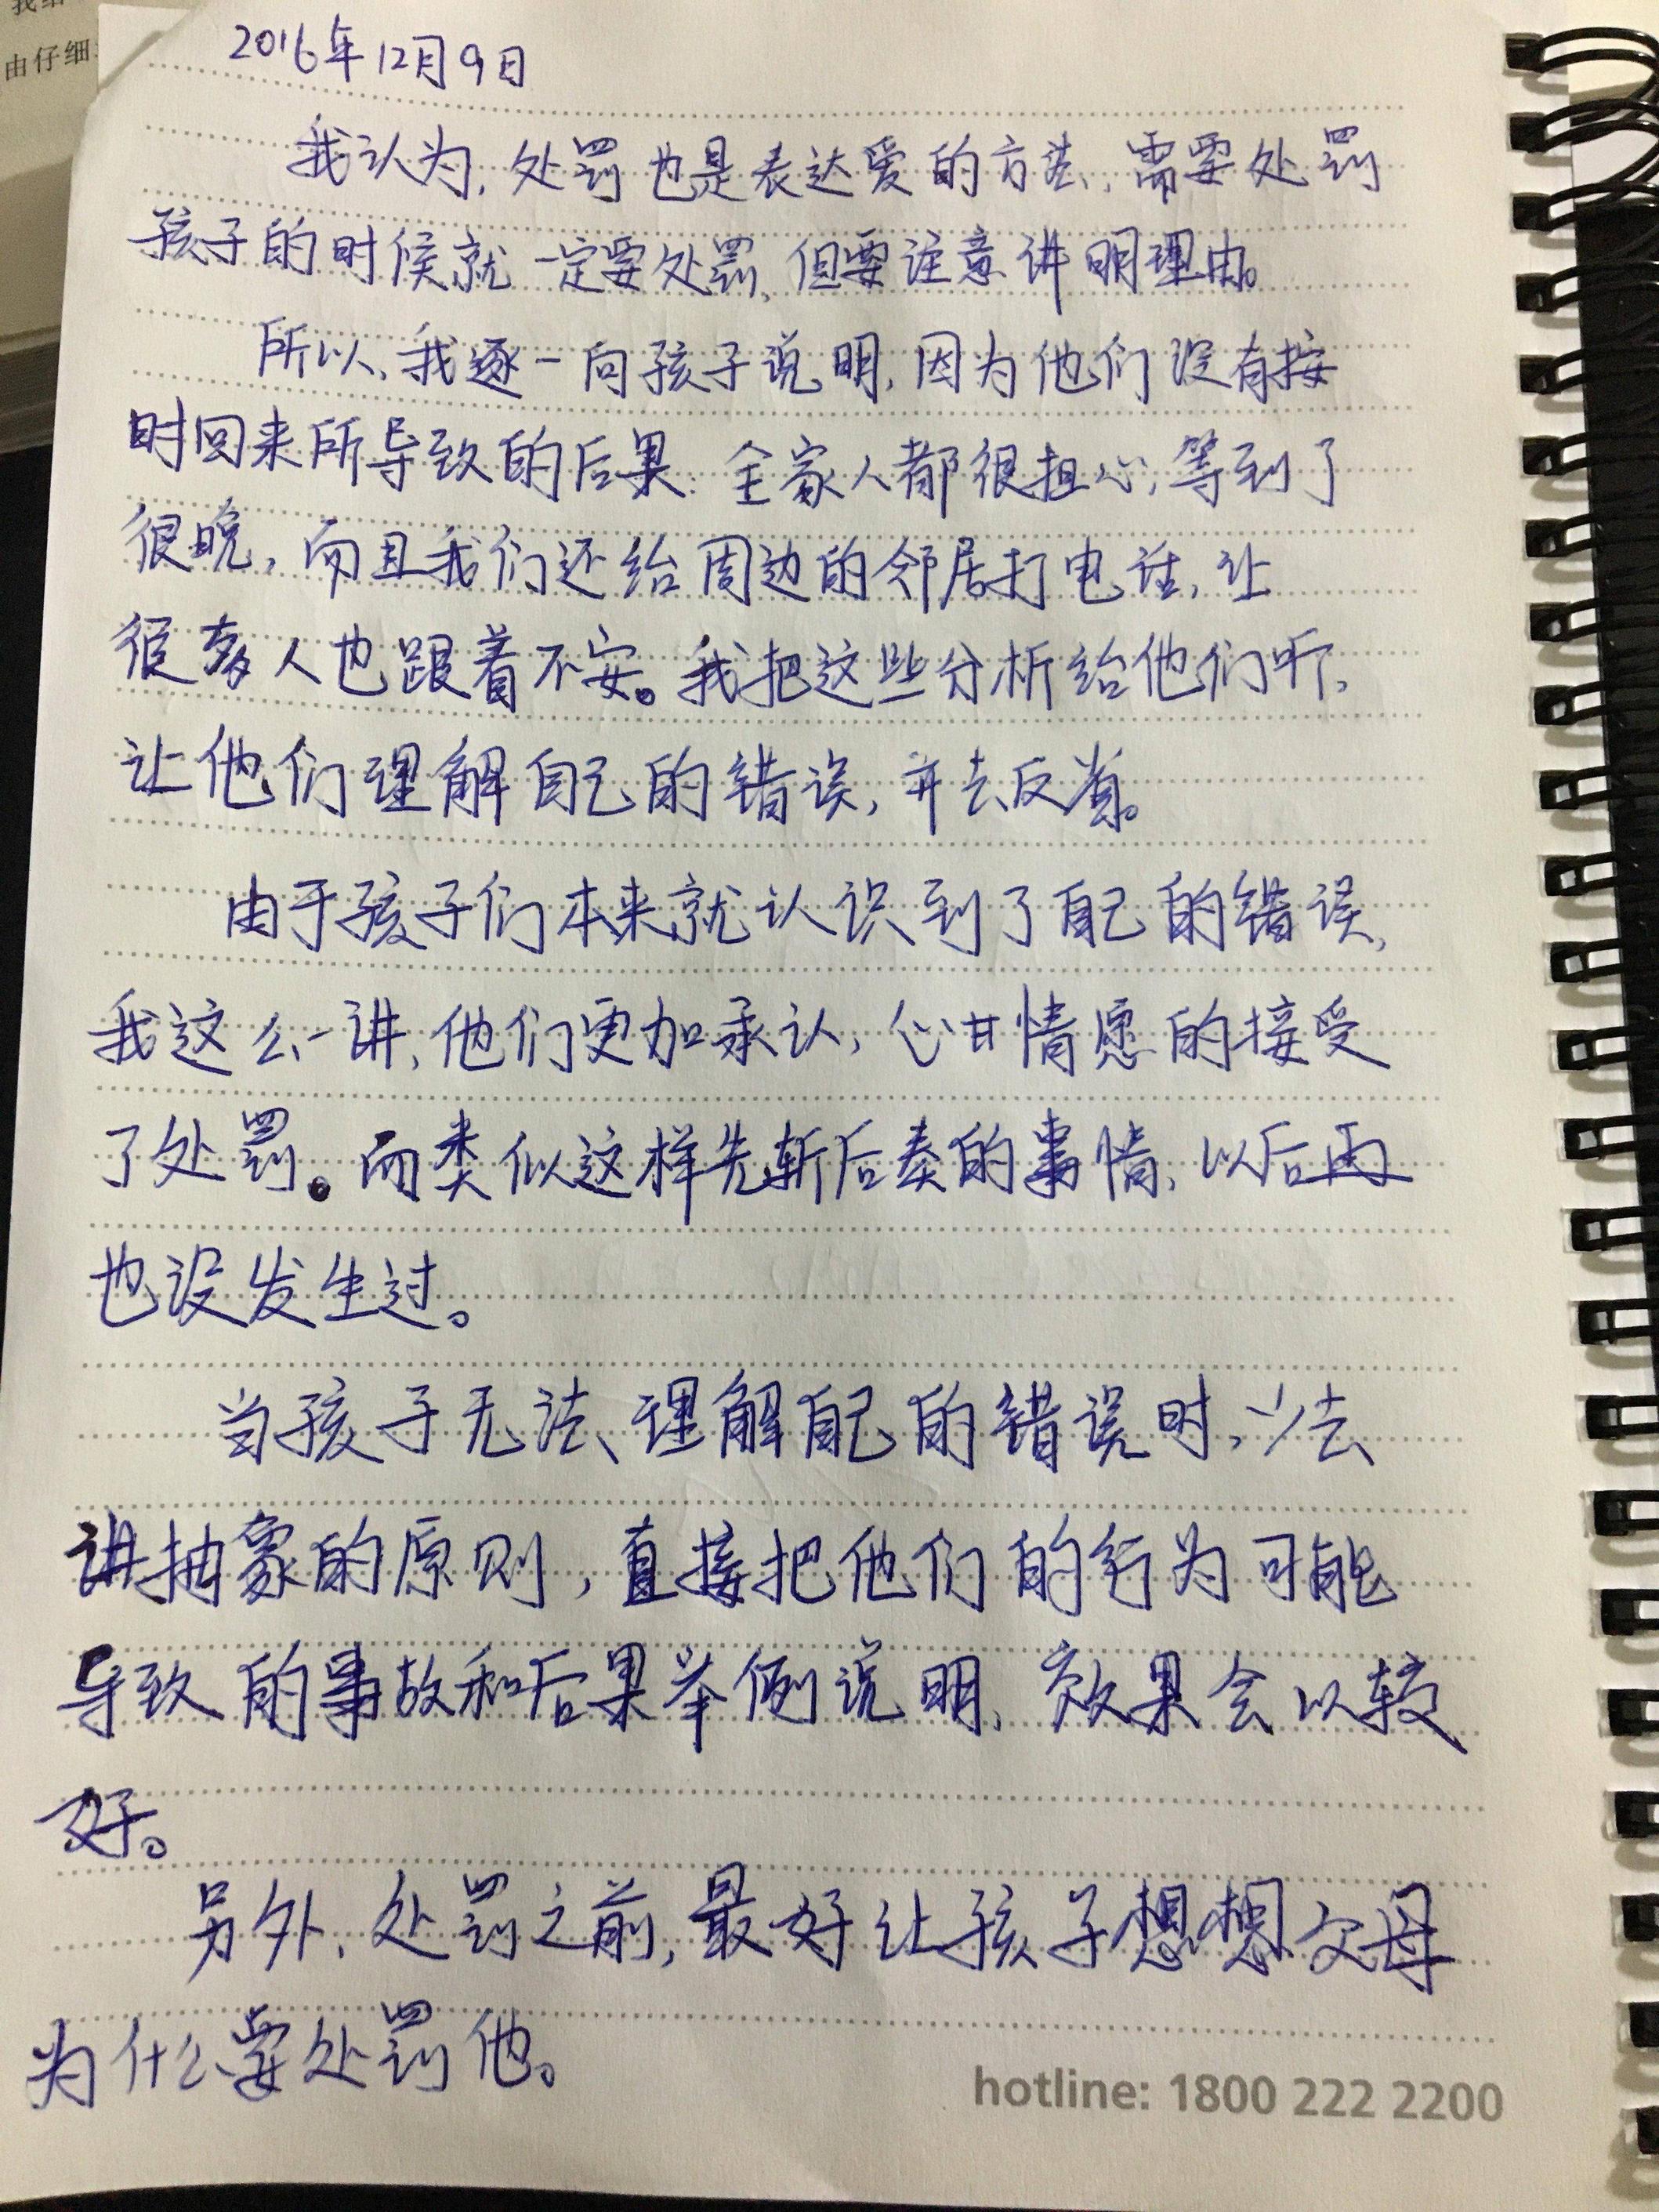 我给
由仔细
2016年12月9日
我认为,处罚也是表达爱的方法,需要处罚
孩子的时候就一定要处罚,但要注意讲明理由。
所以,我逐一向孩子说明,因为他们没有按
时回来所导致的后果:全家人都很担心,等到了
很晚,而且我们还给周边的邻居打电话,让
很多人也跟着不安。我把这些分析给他们听,
让他们理解自己的错误,并去反省。
由于孩子们本来就认识到了自己的错误,
我这么一讲,他们更加承认,心甘情愿的接受
了处罚。而类似这样先斩后奏的事情,以后再
也没发生过。
当孩子无法理解自己的错误时,少去
讲抽象的原则,直接把他们的行为可能
导致的事故和后果举例说明,效果会以较
好。
另外,处罚之前,最好让孩子想想父母
为什么要处罚他。
hotline: 1800 222 2200